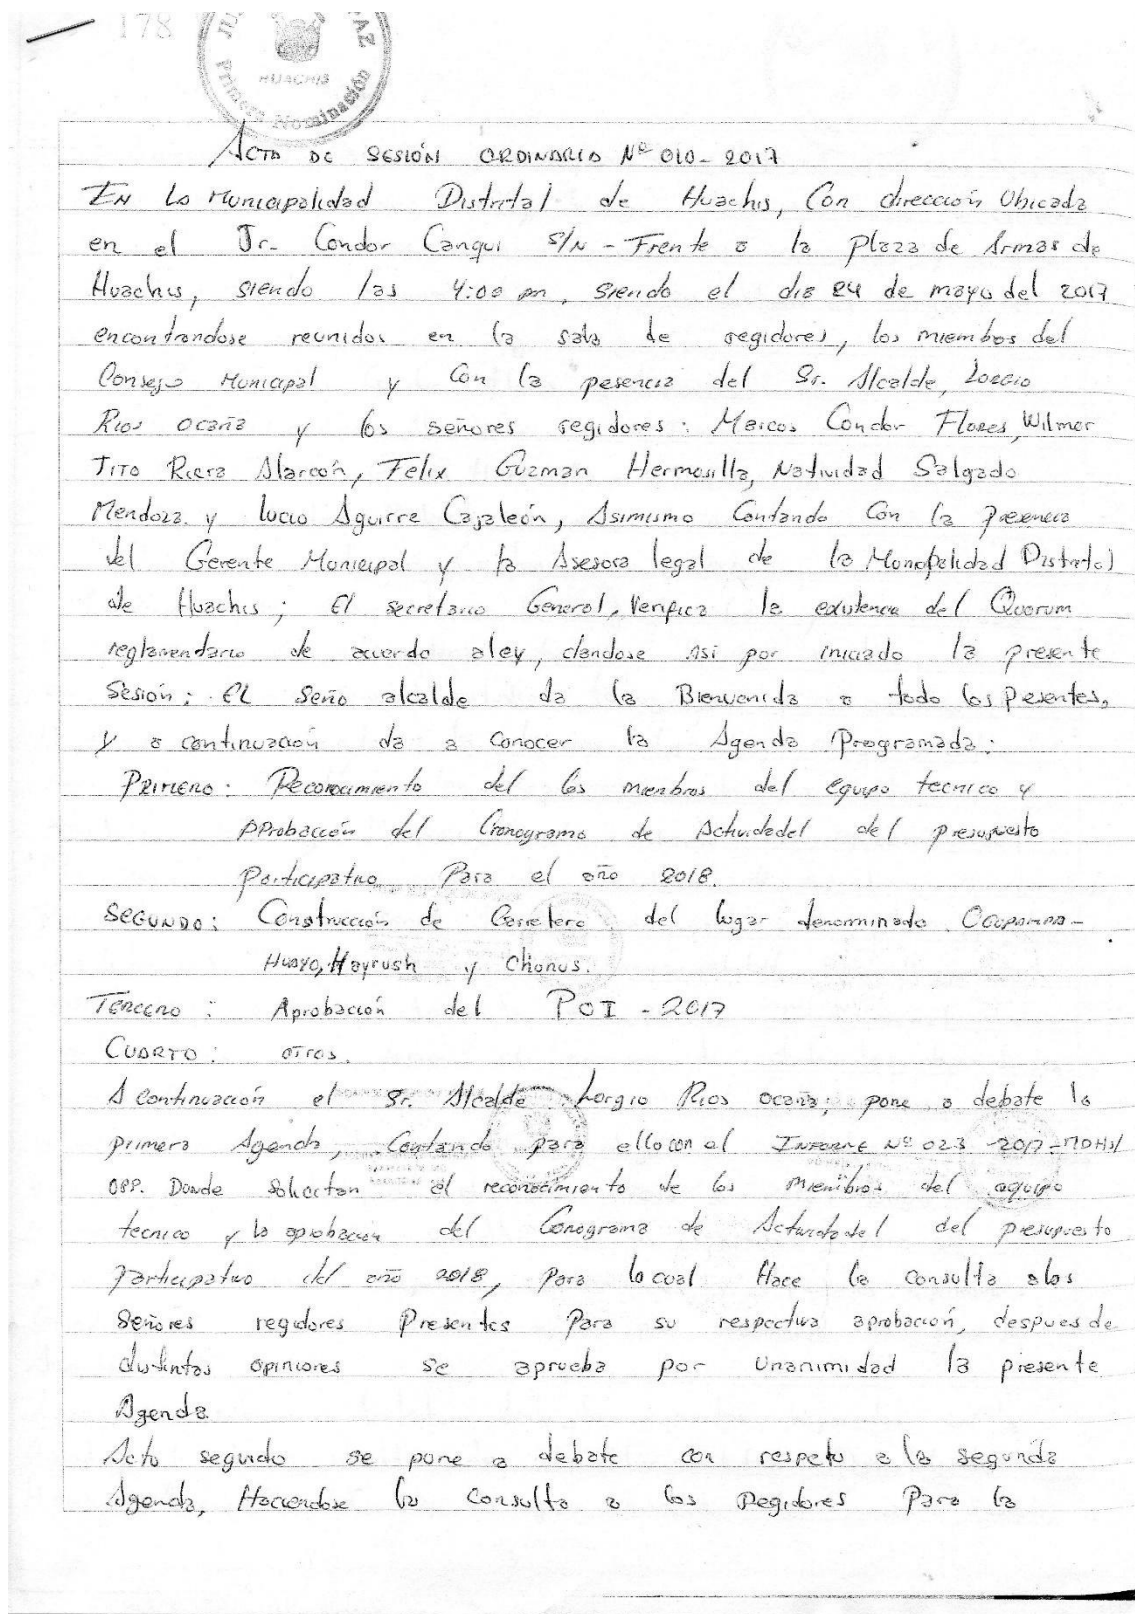 178
HUACHIS
Primera Nominación
ACTA DE SESIÓN ORDINARIA Nº 010-2017
EN La Municipalidad Distrital de Huachis, Con dirección Ubicada
en el Jr. Condor Canqui S/N - Frente a la Plaza de Armas de
Huachis, siendo las 4:00 pm, siendo el dia 24 de mayo del 2017
encontrandose reunidos en la sala de regidores, los miembros del
Consejo Municipal y Con la pesencia del Sr. Alcalde, Lorgio
Rios Ocaña y los señores regidores: Marcos Condor Flores, Wilmer
TITO Riera Alarcón, Felix Guzman Hermosilla, Natividad Salgado
Mendoza y Lucio Aguirre Cajaleón, Asimismo Contando Con la Presencia
del Gerente Municipal y la Asesora legal de la Municipalidad Distrital
de Huachis; El secretario General, Verifica la existencia del Quorum
reglamentario de acuerdo aley, dandose Asi por iniciado la presente
Sesión; El Seño alcalde da la Bienvenida a todo los Pesentes,
y a continuación da a Conocer la Agenda Programada:
PRIMERO: Reconocimiento del los miembros del equipo tecnico y
APRobacción del Cronograma de Actividadel del presupuesto
Participativo Para el año 2018.
SEGUNDO: Construcción de Carretera del lugar denominado Ocupampa-
Huayo, Hayrush y Chonus.
TERCERO: Aprobación del POI - 2017
CUARTO: OTROS.
A continuación el Sr. Alcalde Lorgio Rios Ocaña, pone a debate la
primera Agenda, Contando para ello con el INFORME Nº 023-2017-MDH/
OPP. Donde Solicitan el reconocimiento de los miembros del equipo
tecnico y la aprobación del Conograma de Actividadel del presupuesto
Participativo del año 2018, para lo cual Hace la consulta alos
Señores regidores Presentes Para su respectiva aprobación, despues de
distintas opiniones se aprueba por Unanimidad la presente
Agenda.
Acto segundo se pone a debate con respeto a la segunda
Agenda, Haciendose la Consulta a los Regidores Para la